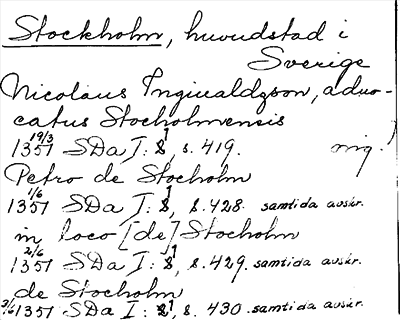 Stockholm, huvudstad i
Sverige
Nicolaus Ingiualdzson, advo-
catus Stocholmensis
19/3
1357 SDa I: 8¹, s. 419. orig.
Petro de Stocholm
1/6
1357 SDa I: 8¹, s. 428. samtida avskr.
in loco [de] Stockholm
2/6
1357 SDa I: 8¹, s. 429. samtida avskr.
de Stocholm
2/6 1357 SDa I: 8¹, s. 430. samtida avskr.